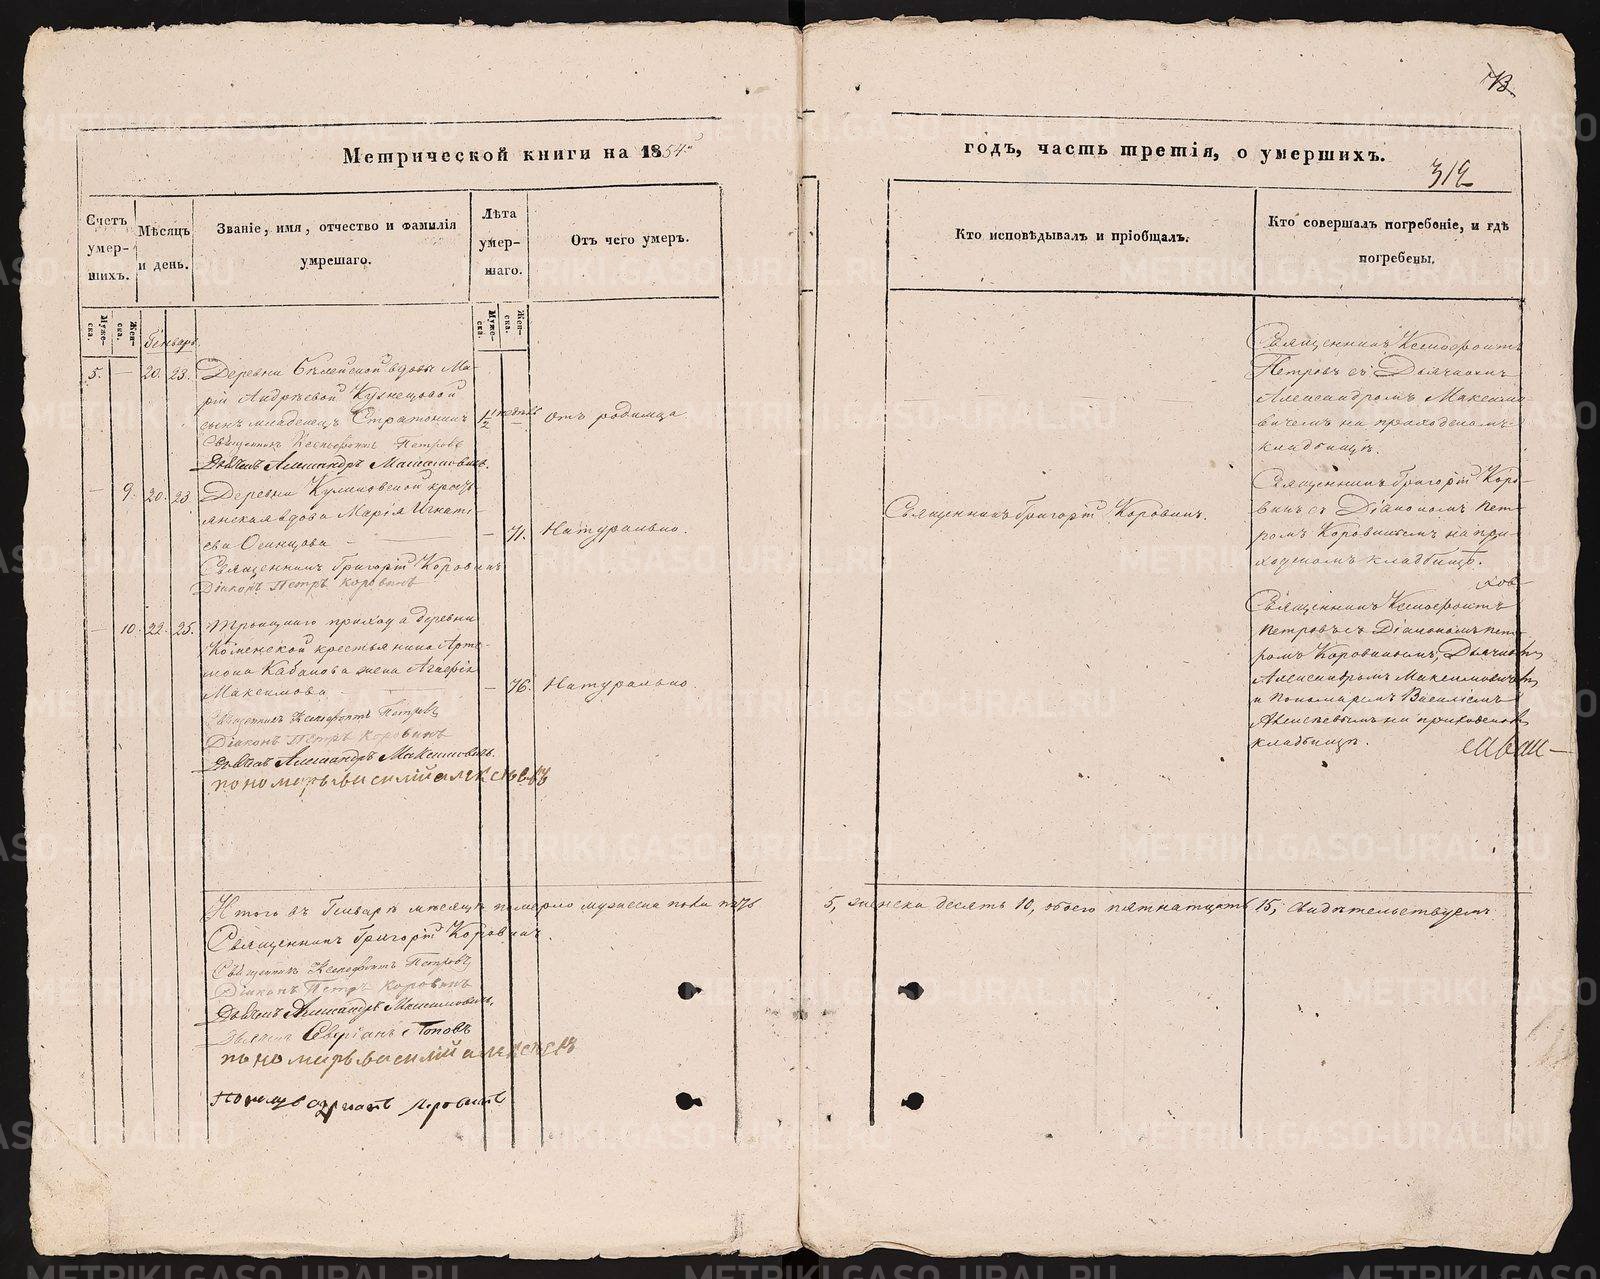 73
Метрической книги на 1854й
годъ, часть третія, о умершихъ.
312
Счетъ умер-шихъ.
Мѣсяцъ и день.
Званіе, имя, отчество и фамилія умршаго.
Лѣта умер-шаго.
Отъ чего умеръ.
Кто исповѣдывалъ и пріобщалъ.
Кто совершалъ погребеніе, и гдѣ погребены.
Муже-ска.
Жен-ска.
Генварь.
Муже-ска.
Жен-ска.
5. — 20. 23. Деревни вдовы Ма-
ріи Андрѣевой Кузнецовой
сынъ младенец Стратоникъ 1/2 недѣли — отъ родимца
Священникъ Ксенофонтъ Петровъ
Дьячекъ Александръ Максимовичъ.
Священникъ Ксенофонтъ
Петровъ съ Дьячкомъ
Александромъ Максимо-
вичемъ на приходскомъ
кладбищѣ.
— 9. 20. 23. Деревни Куликовской кресть-
янская вдова Марія Игнать-
ева Осинцова — 71. Натурально.
Священникъ Григорій Коровинъ
Діаконъ Петръ Коровинъ
Священникъ Григорій Коровинъ.
Священникъ Григорій Коро-
винъ съ Діакономъ Пет-
ромъ Коровинымъ на при-
ходскомъ кладбищѣ.
— 10. 22. 25. Троицкаго прихода деревни
крестьянина Арте-
мона Кабанова жена
Максимова — 76. Натурально.
Священникъ Ксенофонтъ Петровъ
Діаконъ Петръ Коровинъ
Дьячекъ Александръ Максимовичъ.
пономарь василий алексѣевъ
Священникъ Ксенофонтъ
Петровъ съ Діакономъ Пет-
ромъ Коровинымъ, Дьячкомъ
Александромъ Максимовичемъ
и Пономаремъ Василіемъ
Алексѣевымъ на приходскомъ
кладбищѣ.
Итого въ Генварѣ мѣсяцѣ померло мужеска пола пять 5, женска десять 10, обоего пятнатцать 15; свидѣтельствуемъ
Священникъ Григорій Коровинъ.
Священникъ Ксенофонтъ Петровъ
Діаконъ Петръ Коровинъ
Дьячекъ Александръ Максимовичъ.
Дьячекъ Северіанъ Поповъ
пономарь василий алексѣевъ